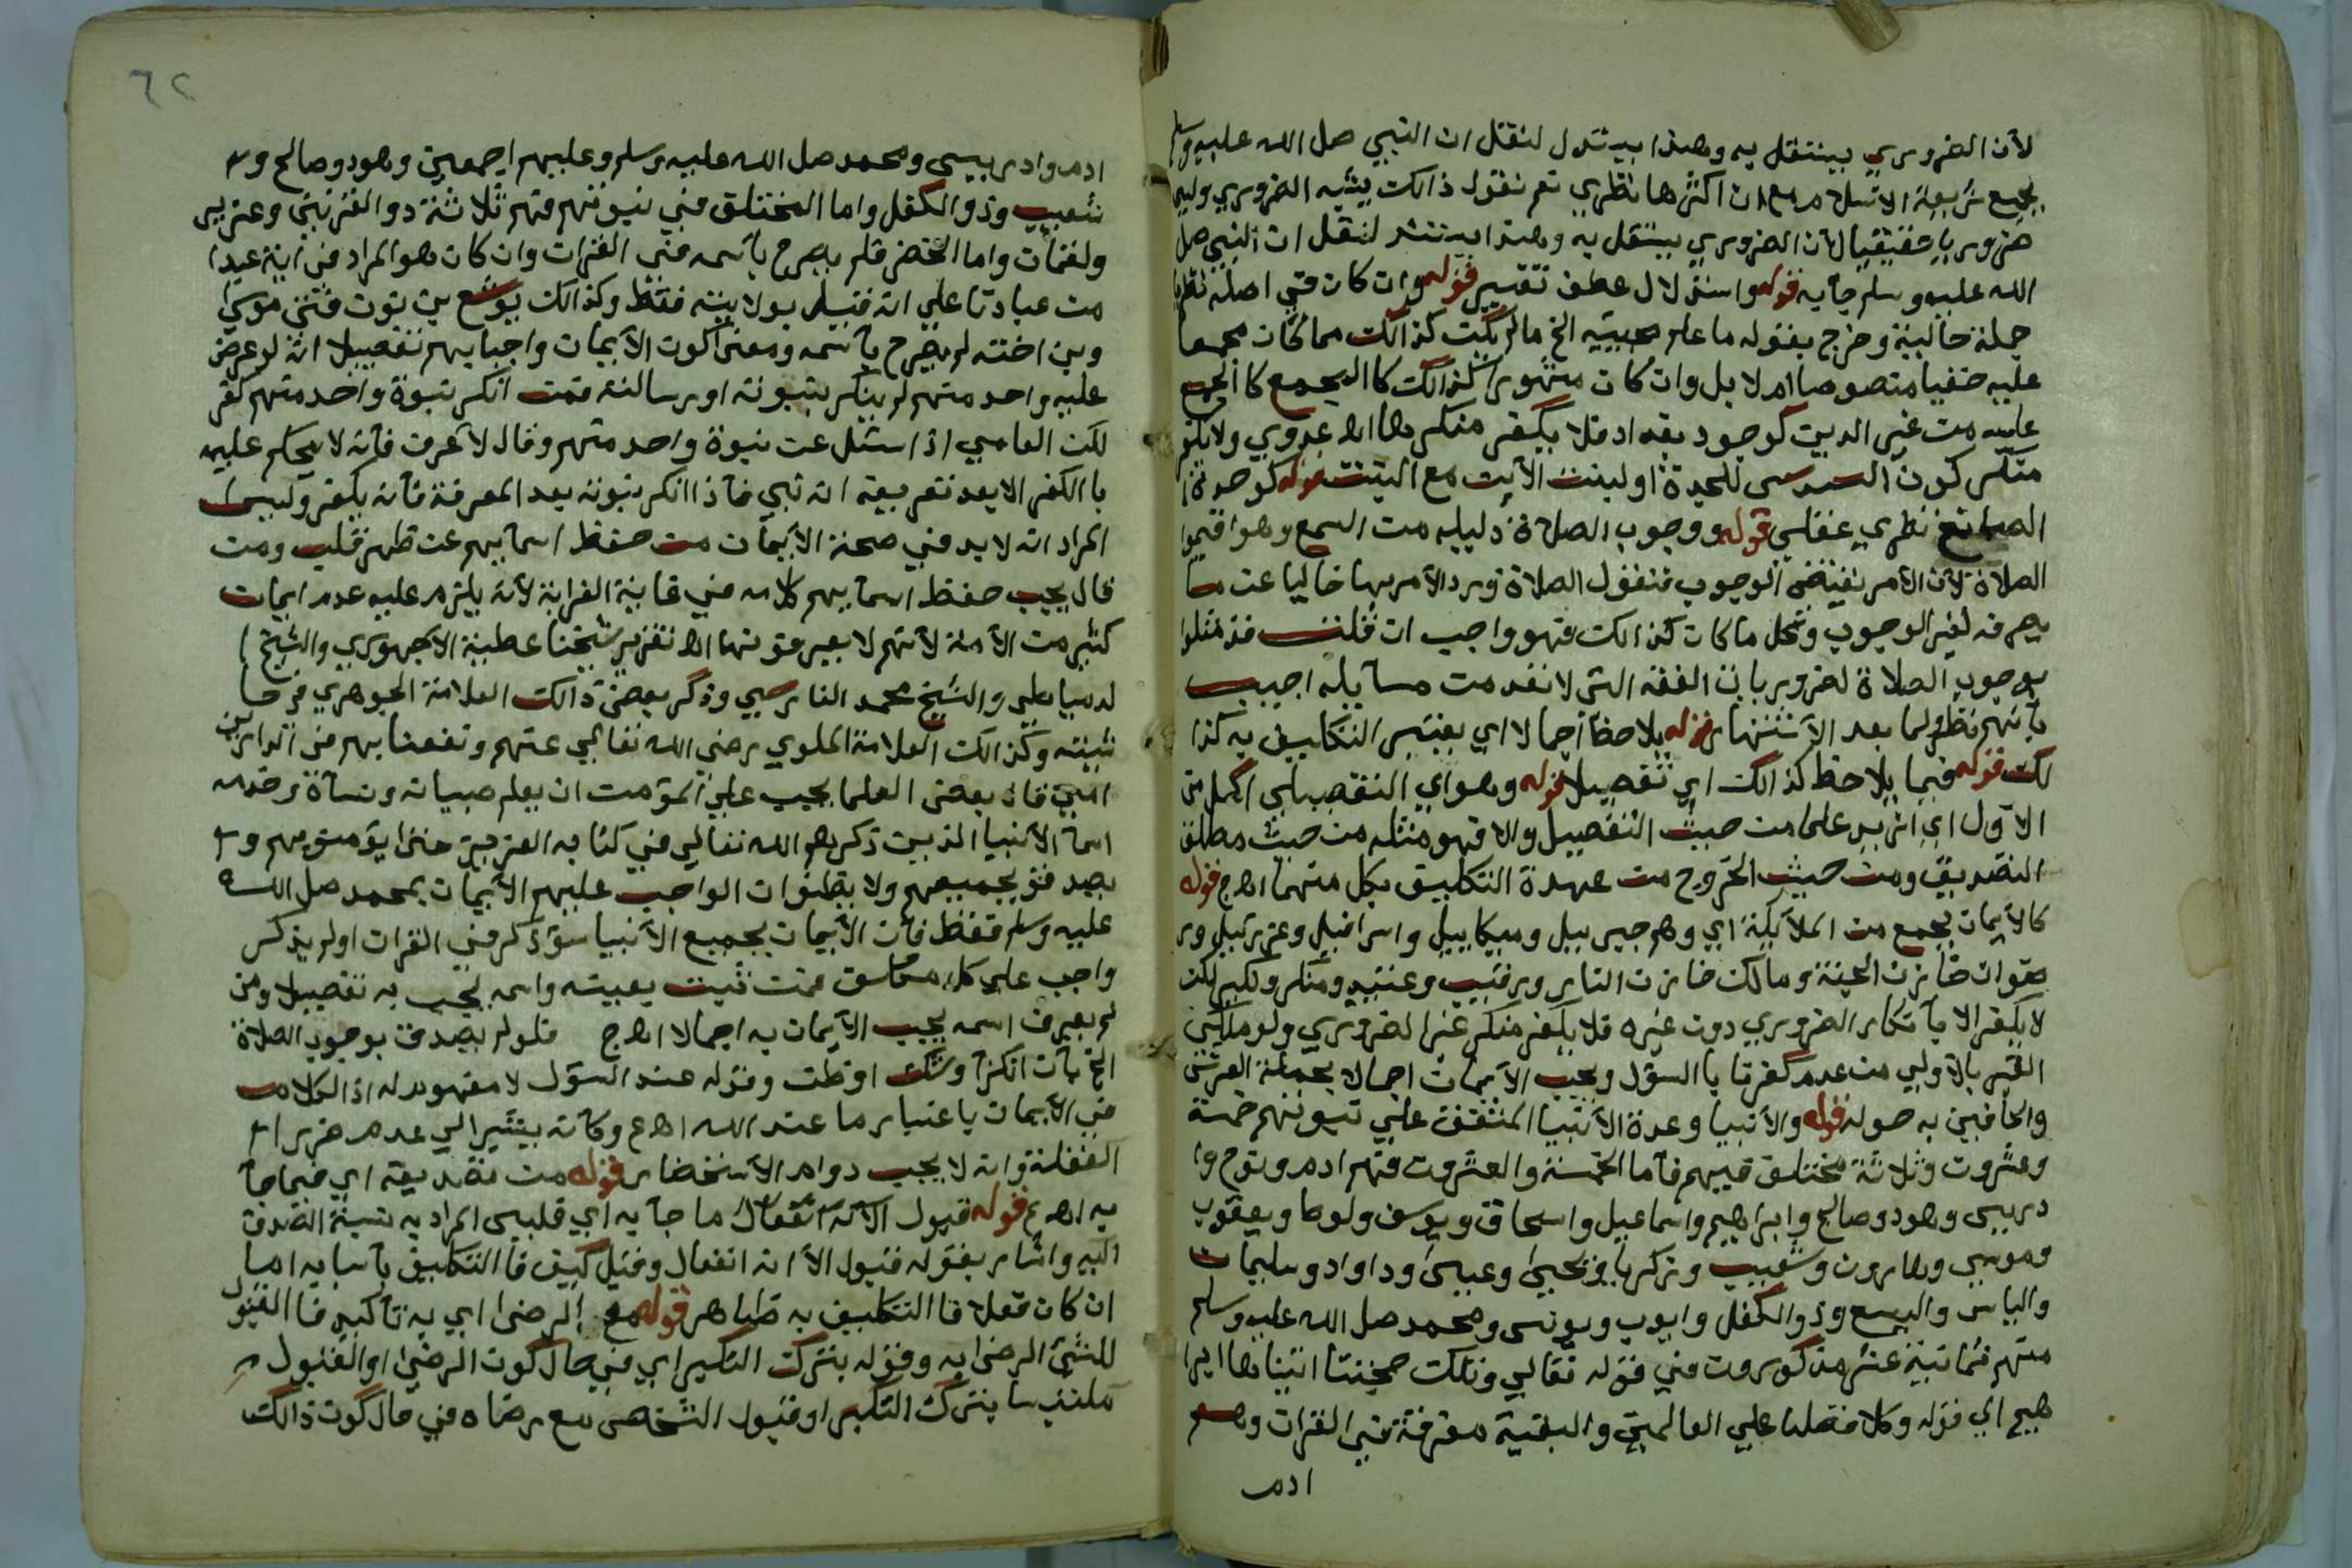 لأن الضروري يستقل به وهذا يستدل لنقل ان النبي صل الله عليه وسلم
بجميع شريعة الاسلام مع ان اكثرها نظري نعم نقول ذالك يشبه الضروري وليس
ضروريا حقيقيا لأن الضروري يستقل به وهذا يستند لنقل ان النبي صل
الله عليه وسلم جأ به قوله واستدلال عطف تفسير قوله وان كان في اصله نظريا
جملة حالية وخرج بقوله ما علم مجيئه الخ مالم يكن كذالك مما كان مجمعا
عليه خفيا منصوصا ام لا بل وان كان مشهورا كذالك كالمجمع
عليه من غير الدين كوجود بغداد فلا يكفر منكرها اهـ عدوي ولا يكفر
منكر كون السدس للجدة او لبنت الابن مع البنت قوله كوحدة
الصانع نظري عقلي قوله ووجوب الصلاة دليله من السمع وهو اقيموا
الصلاة لأن الأمر يقتضي الوجوب فنقول الصلاة ورد الأمر بها خاليا عن ما
يصرفه لغير الوجوب وكل ما كان كذالك فهو واجب ان قلت قد مثلوا
بوجوب الصلاة لضروريات الفقه التي لا تعد من مسأيله اجيب
بأنهم نظروا لما بعد الأشتهار قوله يلاحظ اجمالا اي يعتبر التكليف به كذا
لك قوله فيما يلاحظ كذالك اي تفصيلا قوله وهو اي التفصيلي اكمل من
الأول اي ازيد علما من حيث التفصيل والا فهو مثله من حيث مطلق
التصديق ومن حيث الخروج من عهدة التكليف بكل منهما اهـ ج قوله
كالأيمان بجمع من الملأيكة اي وهم جبريل وميكاييل واسرافيل وعزرئيل ور
ضوان خازن الجنة ومالك خازن النار ورقيب وعتيد ومنكر ونكير لكن
لا يكفر الا بأنكار الضروري دون غيره فلا يكفر منكر غير الضروري ولو ملكين
القبر بالأولي من عدم كفرنا بالسؤل ويجب الأيمان اجمالا بحملة العرش
والحافين به حوله قوله والأنبيا وعدة الأنبيا المتفق علي نبوتهم خمسة
وعشرون وثلاثة مختلف فيهم فأما الخمسة والعشرون فهم ادم ونوح وا
دريس وهود وصالح وابراهيم واسماعيل واسحاق ويوسف ولوط ويعقوب
وموسي وهارون وشعيب وزكريا ويحيى وعيسى وداواد وسليمان
والياس واليسع وذوالكفل وايوب ويونس ومحمد صل الله عليه وسلم
منهم ثمانية عشر مذكورون في قوله تعالي وتلك حجتنا اتيناها ابرا
هيم الي قوله وكلا فضلنا علي العالمين والبقية مفرقة في القرات وهم
ادم
٦٢
ادم وادريس ومحمد صل الله عليه وسلم وعليهم اجمعين وهود وصالح و
شعيب وذو الكفل واما المختلف في نبوتهم فهم ثلاثة ذو القرنين وعزير
ولقمأن واما الخضر فلم يصرح بأسمه في القرات وان كان هو المراد في اية عبدا
من عبادنا علي انه قيل بولايته فقط وكذالك يوشع بن نون فتى موسي
وبن اخته لم يصرح بأسمه ومعنى كون الأيمان واجبا بهم تفصيلا انه لو عرض
عليه واحد منهم لم ينكر نبوته او رسالته فمن انكر نبوة واحد منهم كفر
لكن العامي اذا سئل عن نبوة واحد منهم وقال لا اعرف فأنه لا يحكم عليه
بالكفر الا بعد تعريفه انه نبي فأذا انكر نبوته بعد المعرفة فأنه يكفر وليس
المراد انه لا بد في صحة الأيمأن من حفظ اسمأيهم عن ظهر قلب ومن
قال يجب حفظ اسمأيهم كلامه في غاية الغرابة لأنه يلزم عليه عدم ايمان
كثير من الأمة لأنهم لا يعرفونها اهـ تقرير شيخنا عطية الأجهوري والشيخ ا
لدمياطي والشيخ محمد الفارسي وذكر بعض ذالك العلامة الجوهري في حا
شيته وكذالك العلامة الملوي رضي الله تعالي عنهم ونفعنا بهم في الدارين
امين قال بعض العلما يجب علي المؤمن ان يعلم صبيانه ونسأه وخدمه
اسمأ الأنبيا الذين ذكرهم الله تعالي في كتابه العزيز حتى يؤمنو بهم و
يصدقو بجميعهم ولا يظنوا ان الواجب عليهم الأيمان بمحمد صل الله
عليه وسلم فقط فأن الأيمان بجميع الأنبيا سؤ ذكر في القرات اولم يذكر
واجب علي كل مكلف فمن ثبت بعينه واسمه يجب به تفصيلا ومن
لم يعرف اسمه يجب الأيمان به اجمالا اهـ ج فلولم يصدق بوجوب الصلاة
الخ بأن انكر أوشك اوظن وقوله عند السؤل لا مفهوم له اذ الكلام
في الأيمان باعتبار ما عند الله اهـ ع وكأنه يشير الي عدم ضرر
الغفلة وانه لا يجب دوام الأستحضار قوله من تصديقه اي فيما جأ
به اهـ ع قوله قبول ما جأ به اي قلبي المراد به نسبة الصدق
اليه واشار بقوله قبول الأ انه انفعال وقيل كيف فا التكليف بأسبابه اما
ان كان فعلا فا التكليف به ظاهر قوله مع الرضى اي به تأكيد فا القبول
للشئ الرضى به وقوله بترك التكبر اي في حال كون الرضى او القبول م
ملتبسا بترك التكبر او قبول الشخص مع رضاه في حال كون ذالك